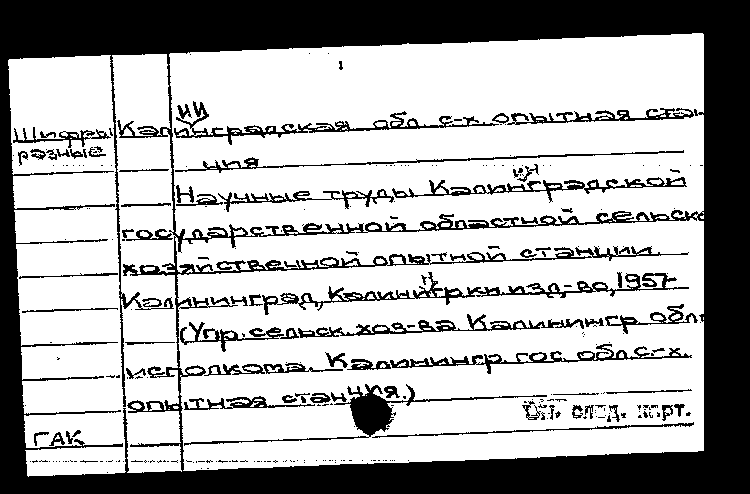 Шифры Калининградская обл. с-х. опытная стан-
разные ция
Научные труды Калининградской
государственной областной сельско
хозяйственной опытной станции.
Калининград, Калининигр.кн.изд-во, 1957-
(Упр.сельск.хоз-ва Калинингр обл
исполкома. Калинингр. гос. обл.с-х.
опытная станция.)
См. след. карт.
ГАК